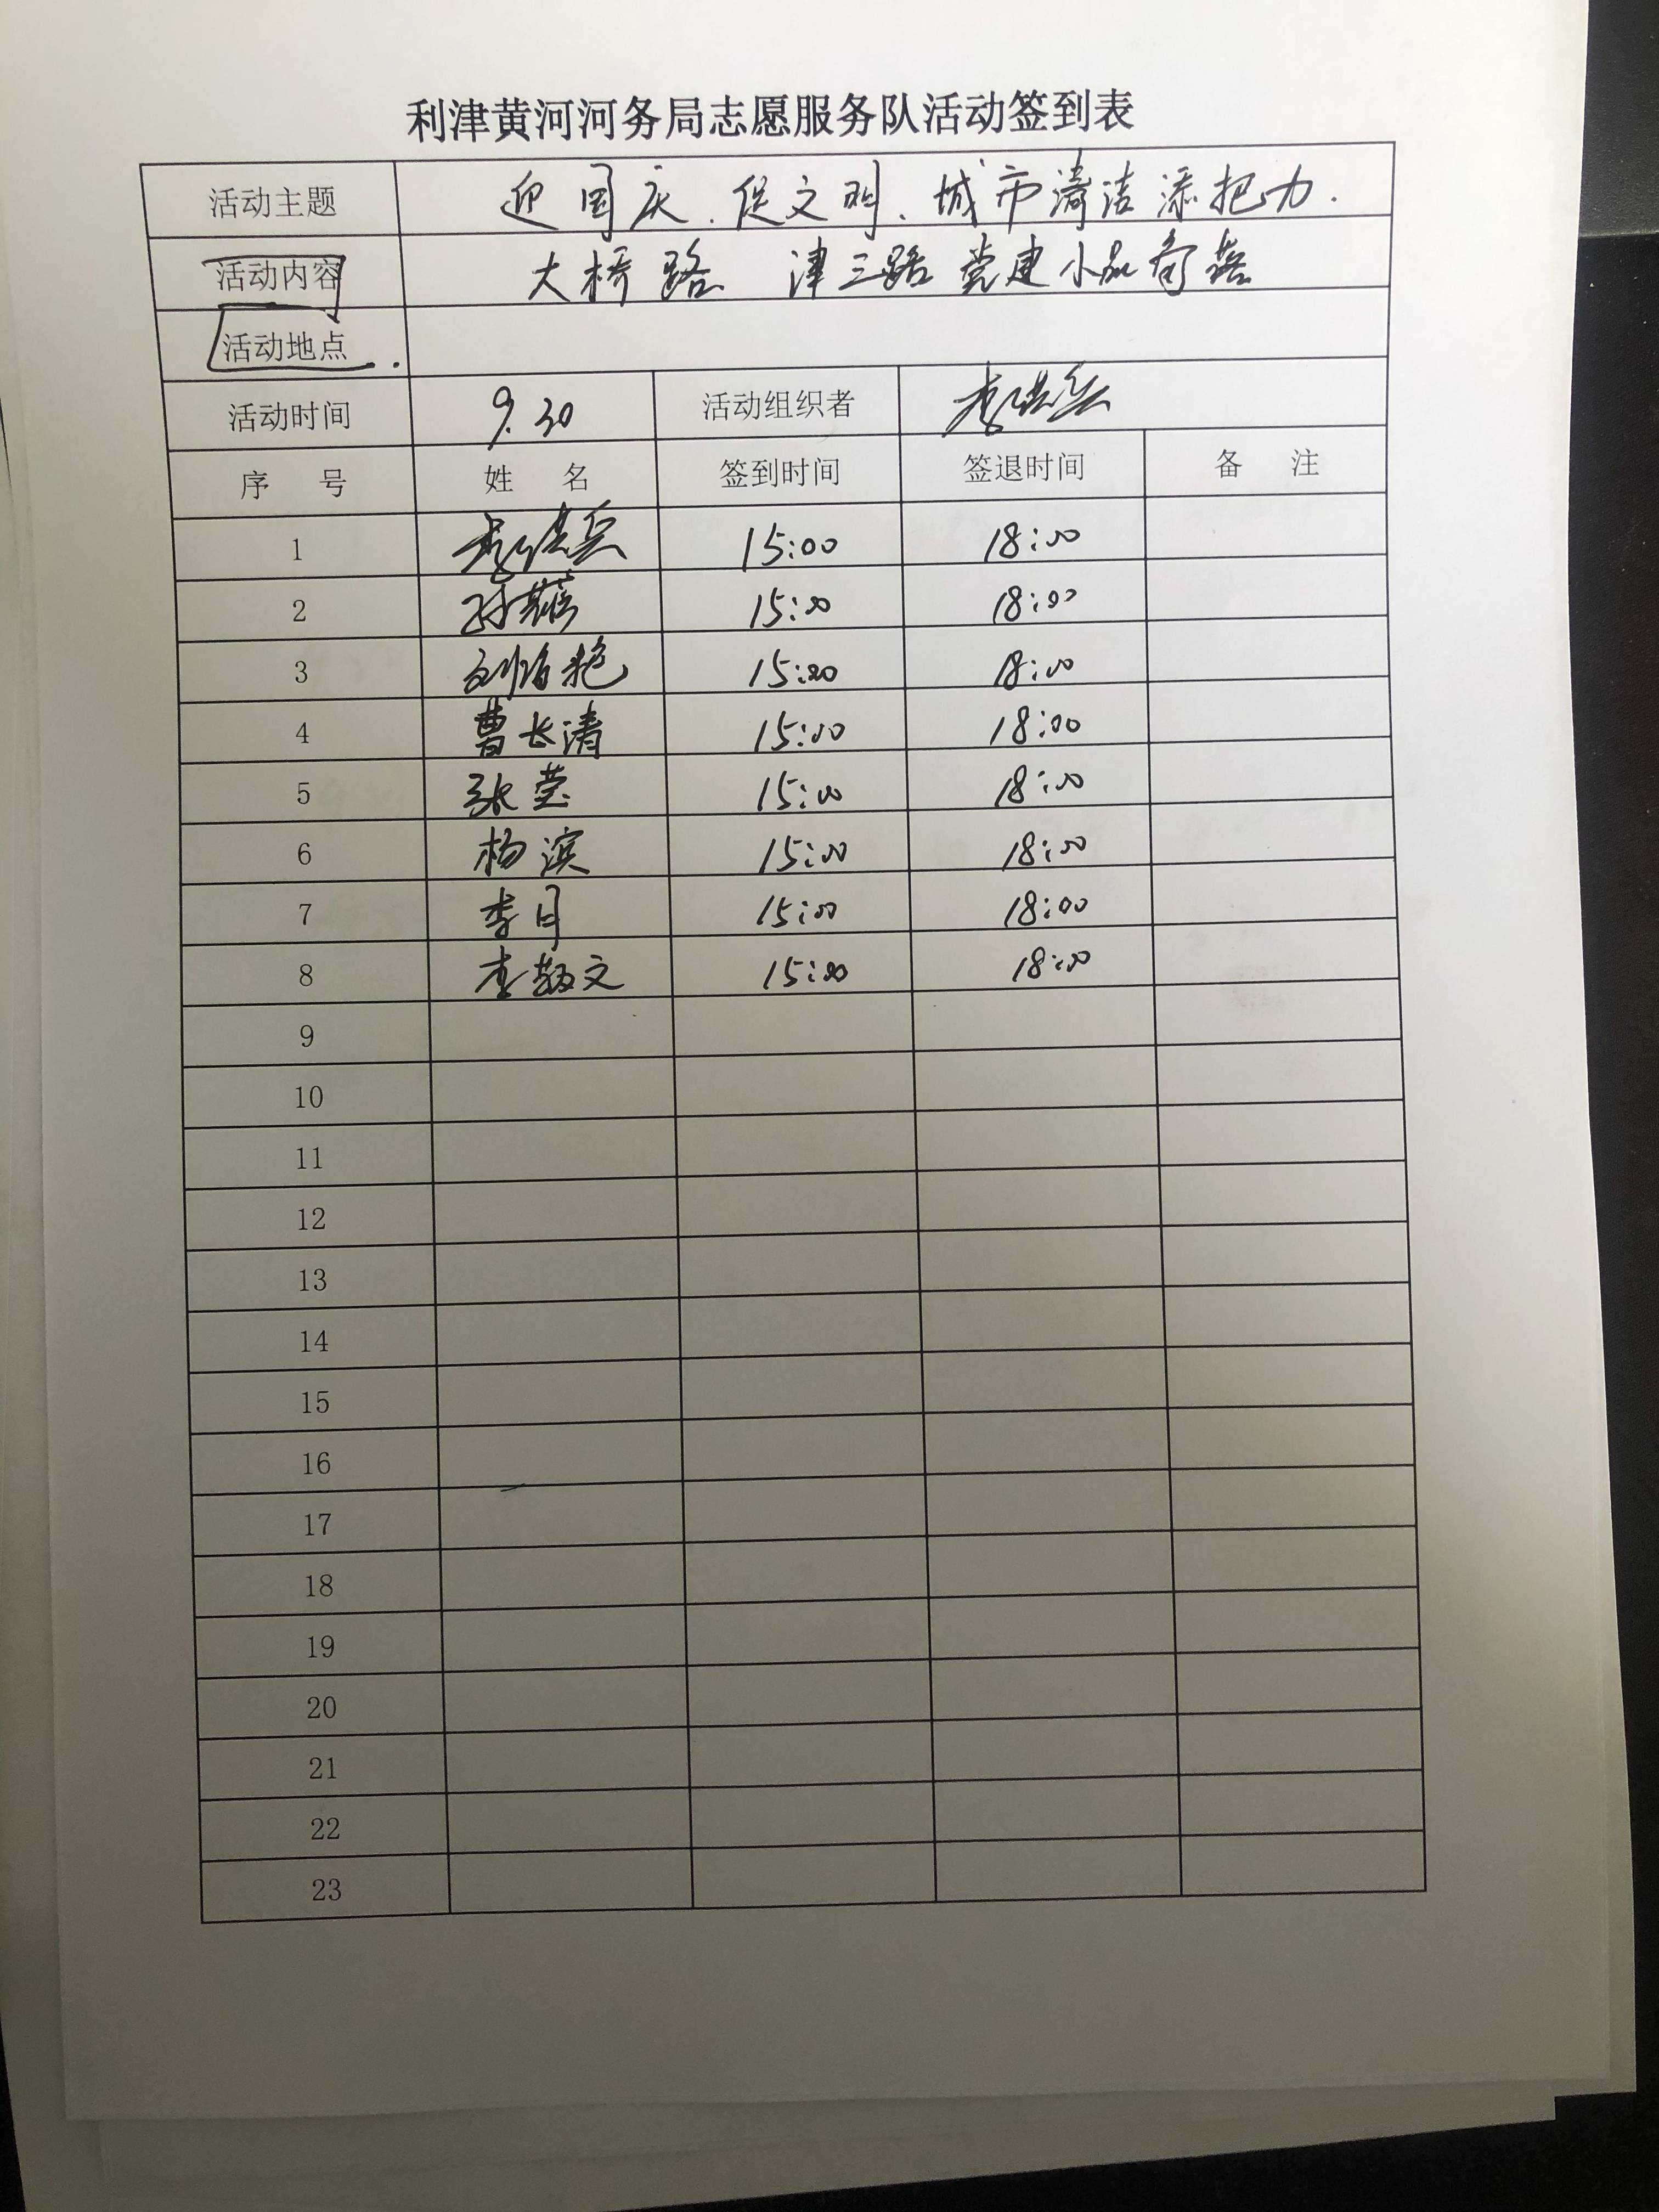 利津黄河河务局志愿服务队活动签到表
活动主题 迎国庆、促文明、城市清洁添把力.
活动内容 大桥路 津三路党建小品
活动地点
活动时间 9.30 活动组织者 李洪兵
序 号 姓 名 签到时间 签退时间 备 注
1 李洪兵 15:00 18:00
2 孙 15:00 18:00
3 刘 艳 15:00 18:00
4 曹长涛 15:00 18:00
5 张莹 15:00 18:00
6 杨滨 15:00 18:00
7 李月 15:00 18:00
8 李 文 15:00 18:00
9
10
11
12
13
14
15
16
17
18
19
20
21
22
23